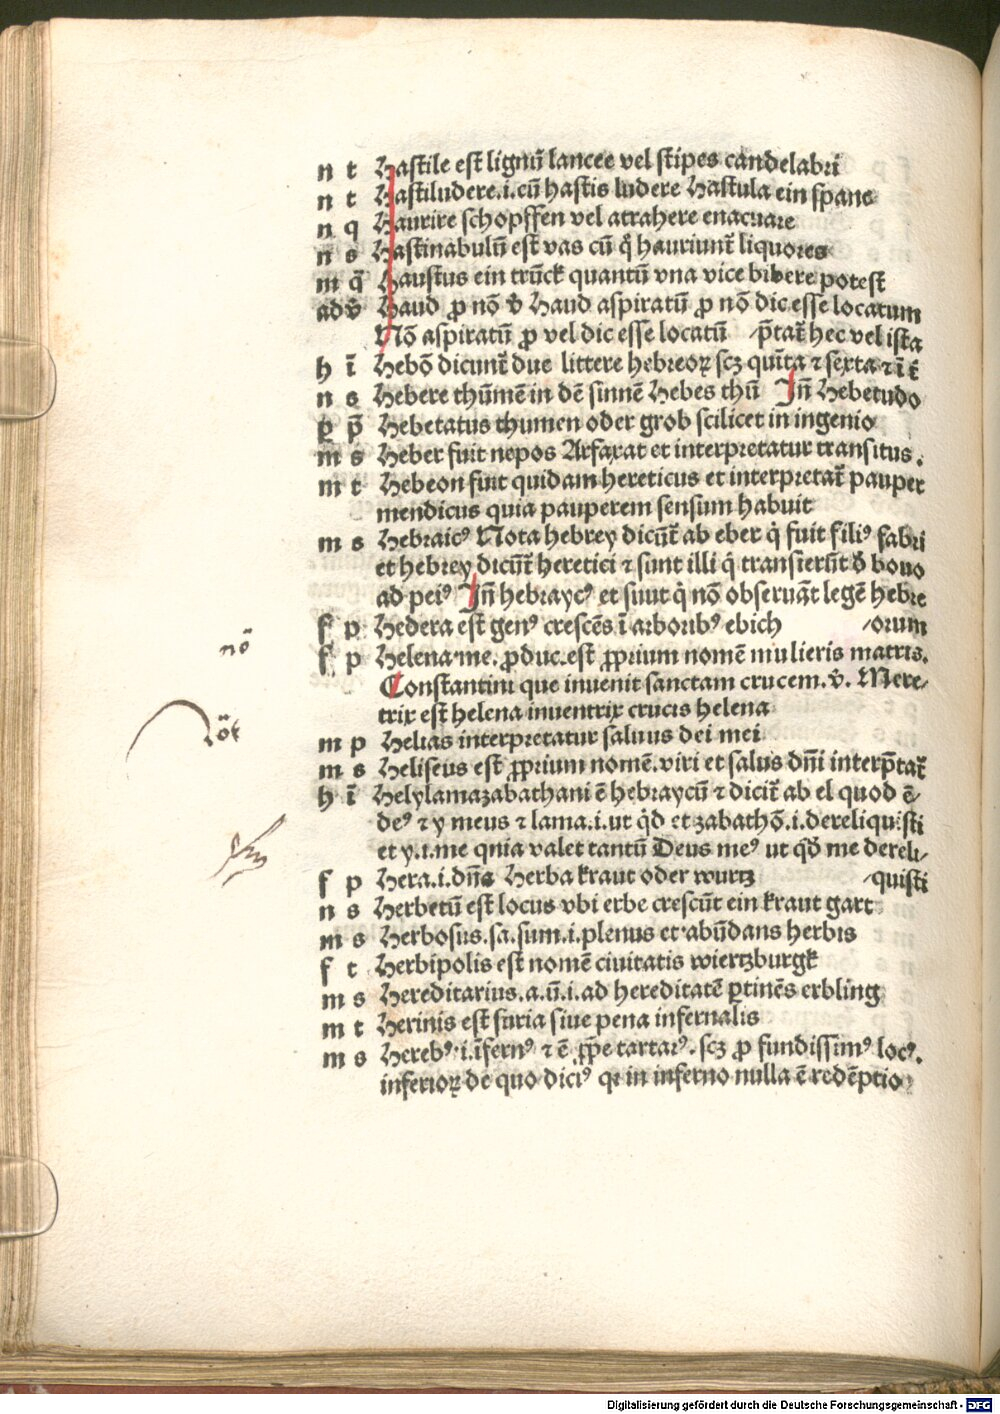 n t Hastile est lignū lancee vel stipes candelabri
n t Hastiludere.i.cū hastis ludere Hastula ein spane
n q Haurire schopffen vel atrahere enacuare
n s Hastinabulū est vas cū q̊ hauriunt̄ liquores
m q̄ Haustus ein trūck quantū vna vice bibere potest
adv̄ Haud ꝓ nō v̄ Haud aspiratū ꝓ nō dic esse locatum
Nō aspiratū ꝓ vel dic esse locatū p̄tat̄ hec vel ista
h ī Hebō dicunt̄ due littere hebreoꝝ scꝫ quīta ⁊ sexta ⁊ ī t̄
n s Hebere thūmē in dē sinnē Hebes thū Jn̄ Hebetudo
ꝑ p̄ Hebetatus thumen oder grob scilicet in ingenio
m s Heber fuit nepos Arfaxat et interpretatur transitus.
m t Hebeon fuit quidam hereticus et interpretat̄ pauper
mendicus quia pauperem sensum habuit
m s Hebraicꝰ Nota hebrey dicūt̄ ab eber q̇ fuit filiꝰ fabri
et hebrey dicūt̄ heretici ⁊ sunt illi q̇ transierūt d̄ bono
ad peiꝰ Jn̄ hebraycꝰ et suut q̇ nō obseruāt legē hebre
f p Hedera est genꝰ crescēs ī arboribꝰ ebich -orum
f p Helena·me. ꝓduc.est ꝓprium nomē mulieris matris.
Constantini que inuenit sanctam crucem.v. Mere-
trix est helena inuentrix crucis helena
m p Helias interpretatur saluus dei mei
m s Heliseus est ꝓprium nomē.viri et salus dn̄i interp̄tat̄
h ī Helylamazabathani ē hebraycū ⁊ dicit̄ ab el quod ē-
deꝰ ⁊ y meus ⁊ lama.i.ut q̇d et zabathō.i.dereliquisti
et y.i.me qnia valet tantū Deus meꝰ ut q̇d me dereli-
f p Hera.i.dn̄a Herba kraut oder wurtz -quisti
n s Herbetū est locus vbi erbe crescūt ein kraut gart
m s Herbosus.sa.sum.i.plenus et abūdans herbis
f t Herbipolis est nomē ciuitatis wiertzburgk
m s Hereditarius.a.ū.i.ad hereditatē ꝑtinēs erbling
m t Herinis est furia siue pena infernalis
m s Herebꝰ.i.īfernꝰ ⁊ ē ꝓpe tartarꝰ. scꝫ ꝓ fundissimꝰ locꝰ.
inferioꝝ de quo diciꝰ qꝛ in inferno nulla ē redēptio
nō
Digitalisierung gefördert durch die Deutsche Forschungsgemeinschaft - DFG